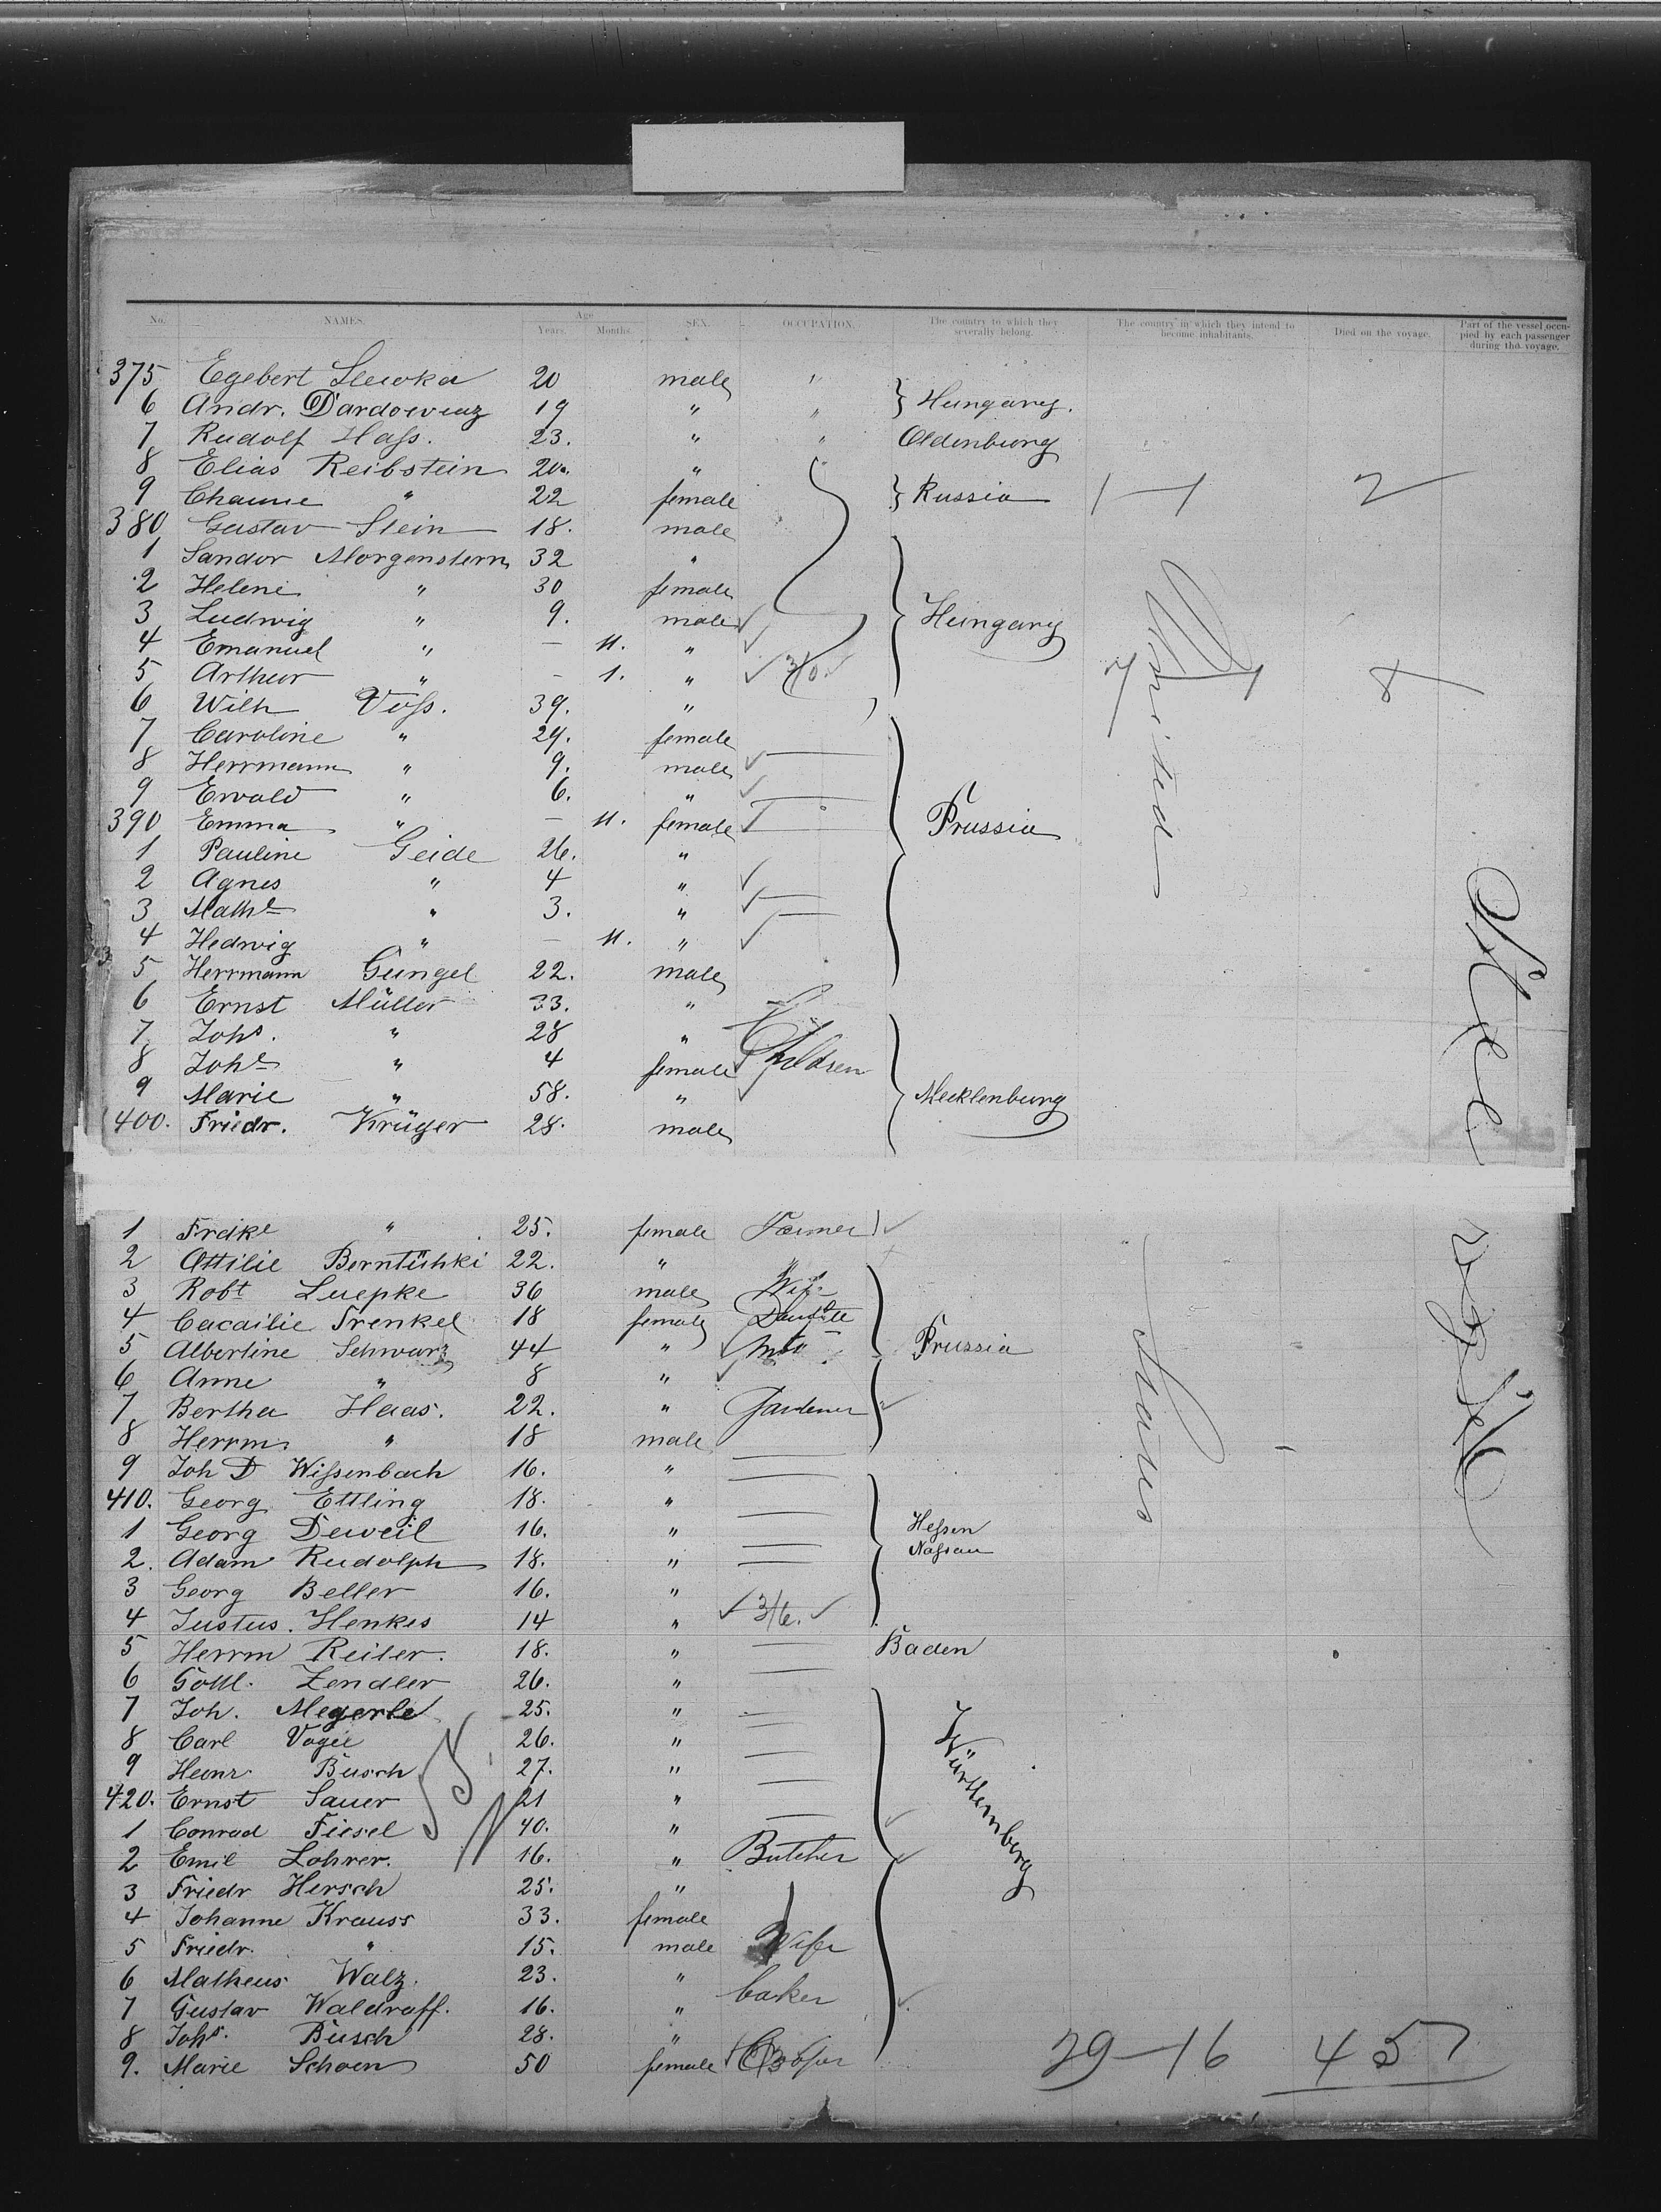 No. NAMES. Age Years. Months. SEX. OCCUPATION. The country to which they severally belong. The country in which they intend to become inhabitants. Died on the voyage. Part of the vessel occupied by each passenger during the voyage.
375 Egebert 20 male "
6 Andr. 19 " " } Hungary.
7 Rudolf Hass. 23. " " Oldenburg
8 Elias Reibstein 20. "
9 " 22 female } Russia 1 - 1 2
380 Gustav Stein 18. male
1 Sandor Morgenstern 32 "
2 Helene " 30 female
3 Ludwig " 9. male Hungary United
4 Emanuel " - 11. "
5 Arthur " - 1. " 3/0. 7 - 1 8
6 Wilh Voss. 39. "
7 Caroline " 29. female
8 Herrmann " 9. male
9 Ewald " 6. "
390 Emma " - 11. female Prussia
1 Pauline Geide 26. "
2 Agnes " 4 "
3 Mathe " 3. "
4 Hedwig " - 11. "
5 Herrmann Gungel 22. male
6 Ernst Müller 33. "
7 Johs. " 28 "
8 Johe " 4 female Children
9 Marie " 58. " Mecklenburg
400. Friedr. Krüger 28. male
1 Frdke " 25. female Farmer
2 Ottilie 22. "
3 Robt Luepke 36 male Wife
4 Cacailie Frenkel 18 female
5 Albertine Schwarz 44 " Prussia States
6 Anne " 8 "
7 Bertha Haas. 22. " Gardener
8 Herrm. " 18 male
9 Joh D Wissenbach 16. "
410. Georg Ettling 18. "
1 Georg Deweil 16. " Hessen
2. Adam Rudolph 18. " Nassau
3 Georg Beller 16. "
4 Justus. Henkes 14 " 3/6.
5 Herrm Reiter. 18. " Baden
6 Gottl. Zendler 26. "
7 Joh. Megerle 25. "
8 Carl 26. " Württemberg
9 Heinr. Busch 27. "
420. Ernst Sauer 21 "
1 Conrad Fiesel 40. "
2 Emil Lohrer. 16. " Butcher
3 Friedr Hersch 25. "
4 Johanne Krauss 33. female
5 Friedr. " 15. male Wife
6 Matheus Walz. 23. " baker
7 Gustav Waldraff. 16. "
8 Johs. Busch 28. "
9. Marie Schoen 50 female 29-16 457